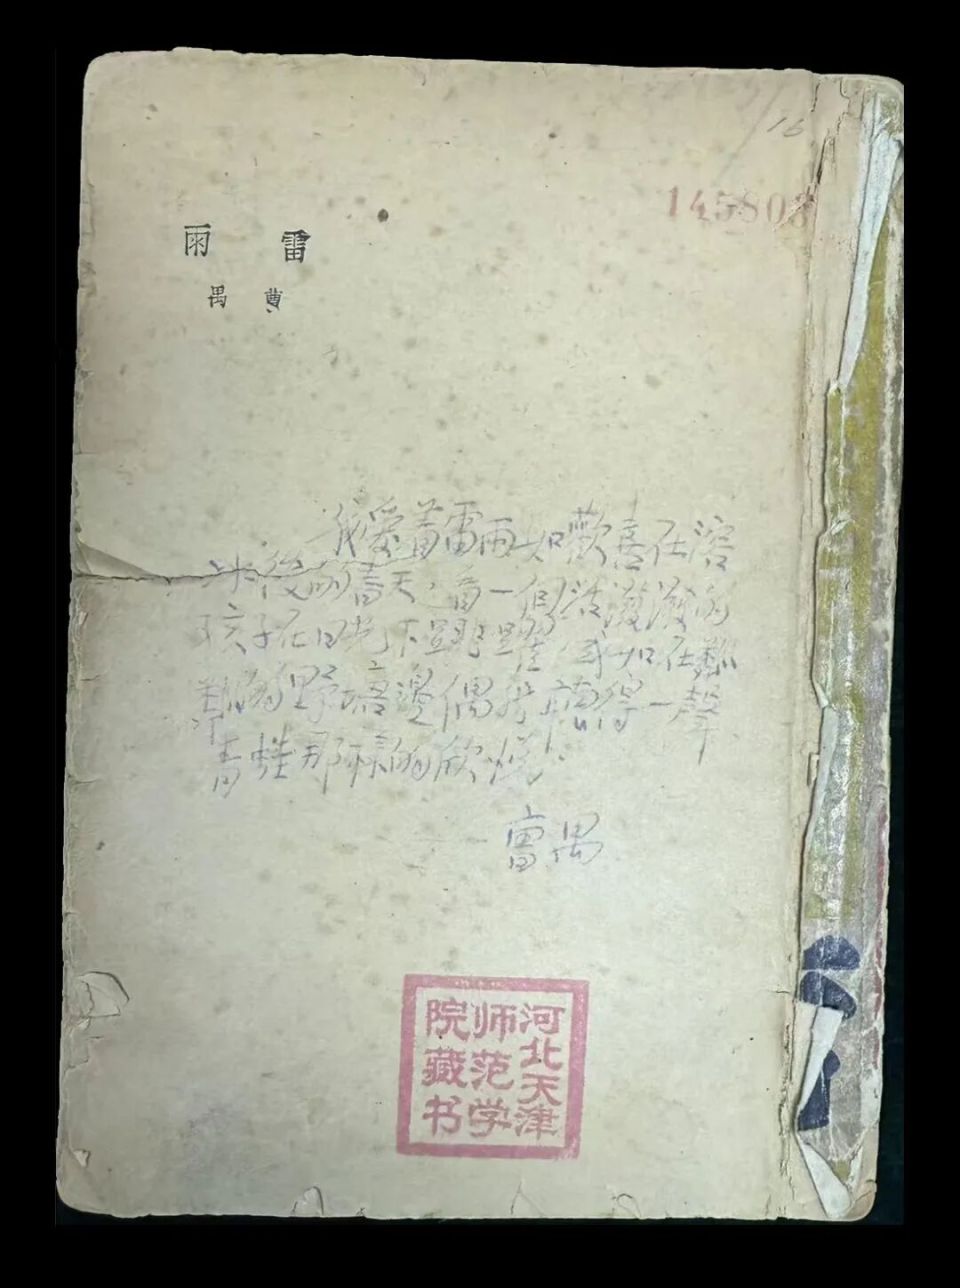 16
雷雨
曹禺
我愛着雷雨如歡喜在溶
冰後的春天,看一個活潑潑的
孩子在日光下跳躍,或如在粼
粼的野塘邊偶然聽得一聲
青蛙那樣的欣悅。
曹禺
河北天津
师范学
院藏书